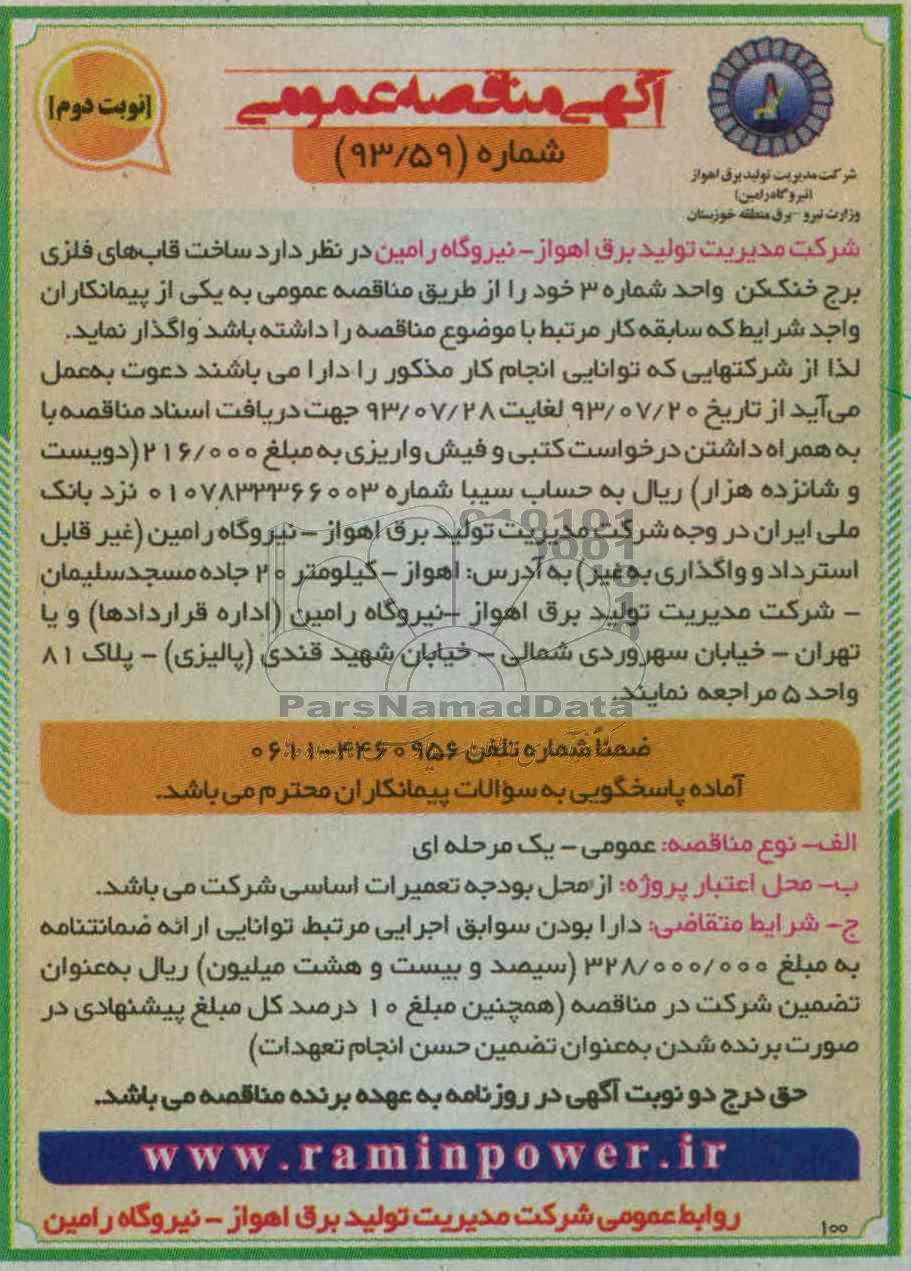 آگهی مناقصه عمومی
شماره (۹۳/۵۹)
[نوبت دوم]
شرکت مدیریت تولید برق اهواز
(نیروگاه رامین)
وزارت نیرو - برق منطقه خوزستان
شرکت مدیریت تولید برق اهواز - نیروگاه رامین در نظر دارد ساخت قاب‌های فلزی
برج خنک‌کن واحد شماره ۳ خود را از طریق مناقصه عمومی به یکی از پیمانکاران
واجد شرایط که سابقه کار مرتبط با موضوع مناقصه را داشته باشد واگذار نماید.
لذا از شرکتهایی که توانایی انجام کار مذکور را دارا می باشند دعوت به‌عمل
می‌آید از تاریخ ۹۳/۰۷/۲۰ لغایت ۹۳/۰۷/۲۸ جهت دریافت اسناد مناقصه با
به همراه داشتن درخواست کتبی و فیش واریزی به مبلغ ۲۱۶/۰۰۰ (دویست
و شانزده هزار) ریال به حساب سیبا شماره ۰۱۰۷۸۳۳۳۶۶۰۰۳ نزد بانک
ملی ایران در وجه شرکت مدیریت تولید برق اهواز - نیروگاه رامین (غیر قابل
استرداد و واگذاری به غیر) به آدرس: اهواز - کیلومتر ۲۰ جاده مسجدسلیمان
- شرکت مدیریت تولید برق اهواز - نیروگاه رامین (اداره قراردادها) و یا
تهران - خیابان سهروردی شمالی - خیابان شهید قندی (پالیزی) - پلاک ۸۱
واحد ۵ مراجعه نمایند.
ParsNamadData
ضمنا شماره تلفن ۴۴۶۰۹۵۶-۰۶۱۱
آماده پاسخگویی به سؤالات پیمانکاران محترم می باشد.
الف- نوع مناقصه: عمومی - یک مرحله ای
ب- محل اعتبار پروژه: از محل بودجه تعمیرات اساسی شرکت می باشد.
ج- شرایط متقاضی: دارا بودن سوابق اجرایی مرتبط، توانایی ارائه ضمانتنامه
به مبلغ ۳۲۸/۰۰۰/۰۰۰ (سیصد و بیست و هشت میلیون) ریال به‌عنوان
تضمین شرکت در مناقصه (همچنین مبلغ ۱۰ درصد کل مبلغ پیشنهادی در
صورت برنده شدن به‌عنوان تضمین حسن انجام تعهدات)
حق درج دو نوبت آگهی در روزنامه به عهده برنده مناقصه می باشد.
www.raminpower.ir
روابط عمومی شرکت مدیریت تولید برق اهواز - نیروگاه رامین
۱۰۰